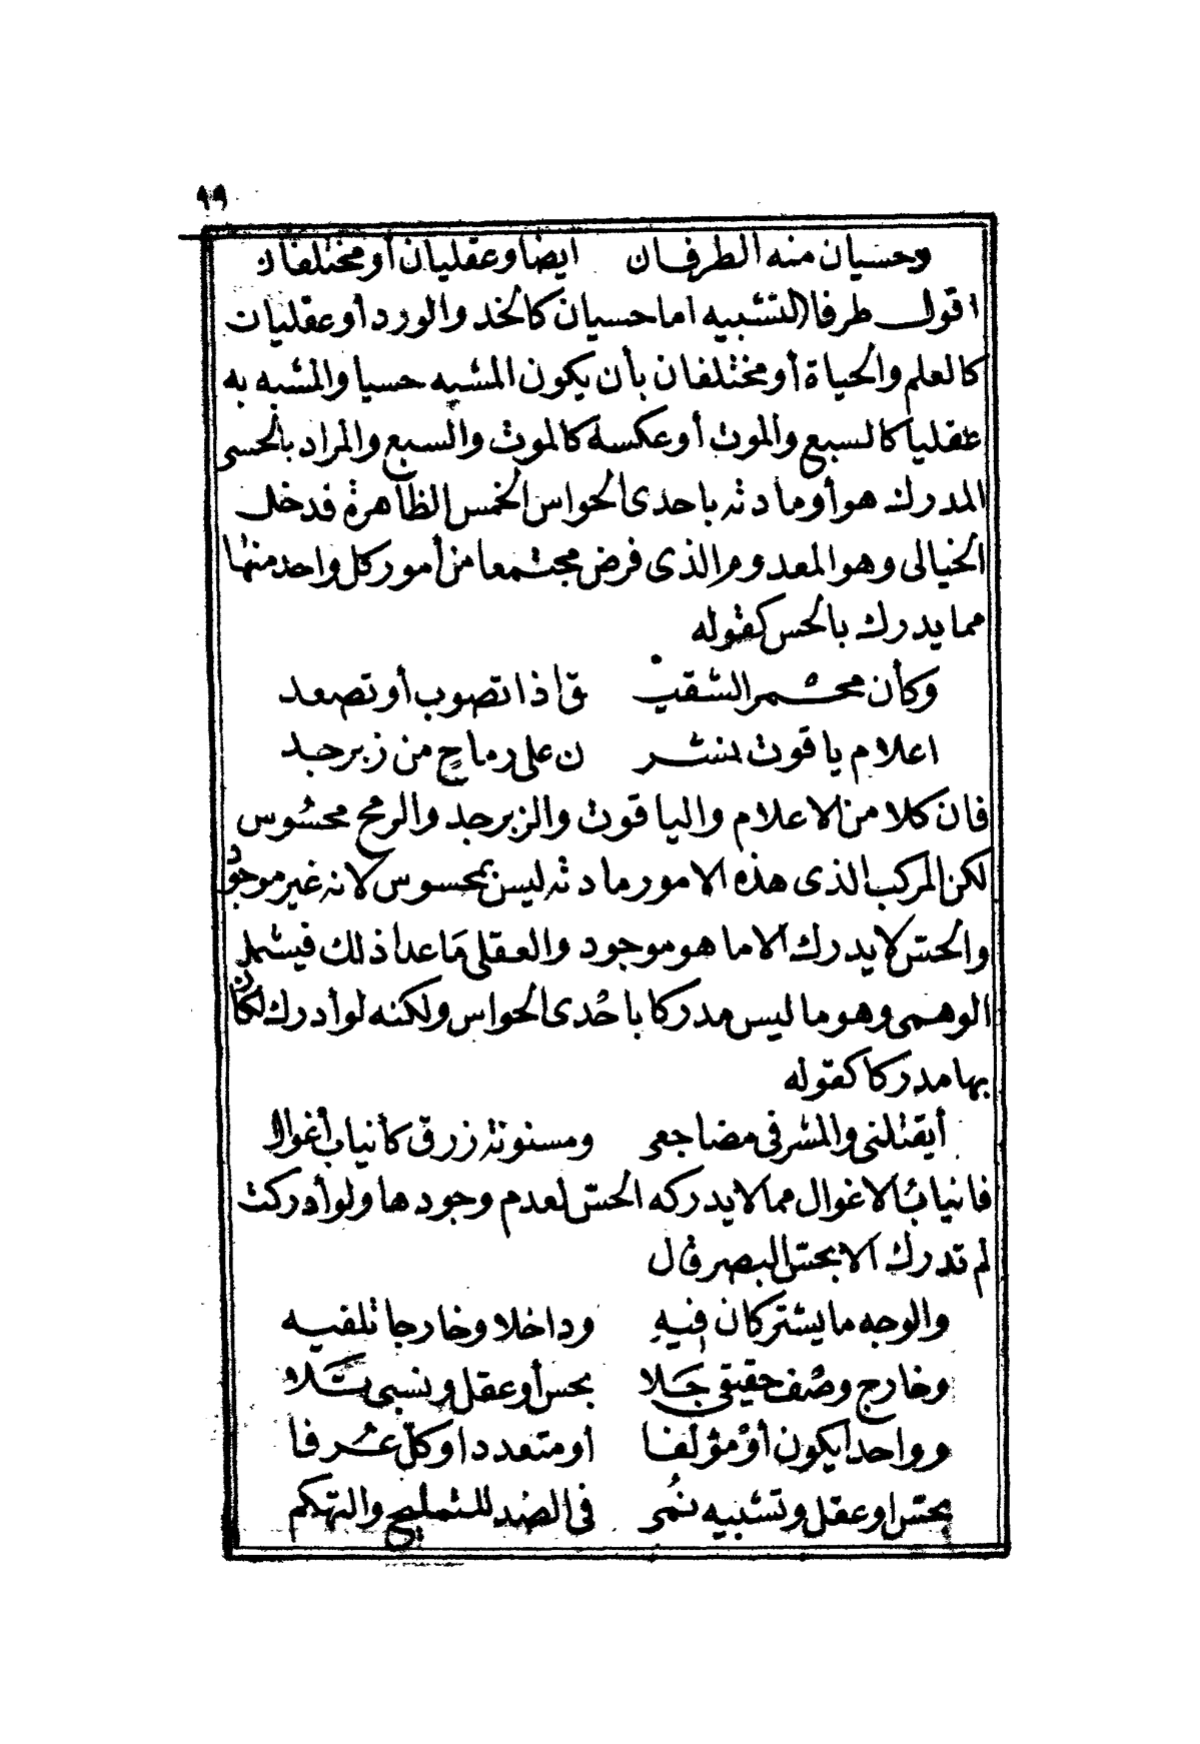 ٩٩
وحسيان منه الطرفان ايضا وعقليان أو مختلفان
اقول طرفا التشبيه اما حسيان كالخد والورد أو عقليان
كالعلم والحياة أو مختلفان بأن يكون المشبه حسيا والمشبه به
عقليا كالسبع والموت أو عكسه كالموت والسبع والمراد بالحسى
المدرك هو أو مادته باحدى الحواس الخمس الظاهرة فدخل
الخيالى وهو المعدوم الذى فرض مجتمعا من أمور كل واحد منها
مما يدرك بالحس كقوله
وكأن محمر الشقيـ ق اذا تصوب أو تصعد
اعلام ياقوت نشر ن على رماح من زبرجد
فان كلا من الاعلام والياقوت والزبرجد والرمح محسوس
لكن المركب الذى هذه الامور مادته ليس بمحسوس لانه غير موجود
والحس لا يدرك الا ما هو موجود والعقلى ما عدا ذلك فيشمل
الوهمى وهو ما ليس مدركا باحدى الحواس ولكنه لو أدرك لكان
بها مدركا كقوله
أيقتلنى والمشرفى مضاجعى ومسنونة زرق كأنياب أغوال
فانياب الاغوال مما لا يدركه الحس لعدم وجودها ولو أدركت
لم تدرك الا بحس البصر قال
والوجه ما يشتركان فيه وداخلا وخارجا تلفيه
وخارج وصف حقيقى جلا بحس أو عقل ونسبى تلا
وواحدا يكون أو مؤلفا أو متعددا وكل عرفا
بحس او عقل وتشبيه نمى فى الضد للتمليح والتهكم